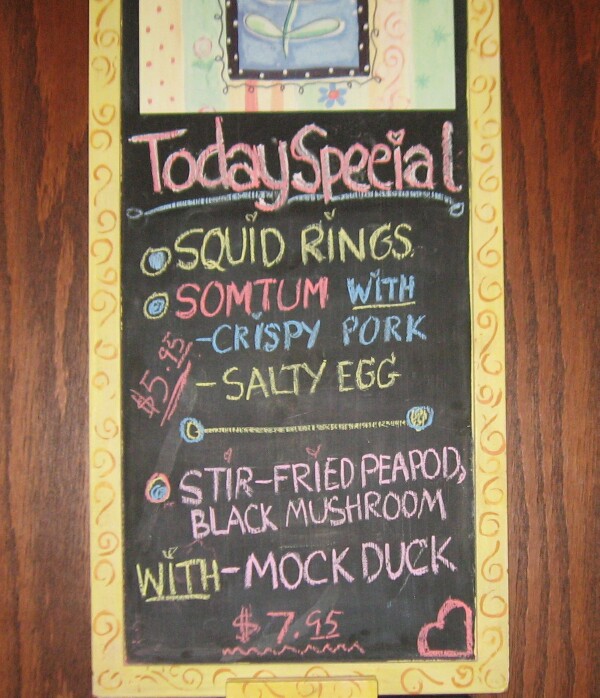 Today Special
SQUID RINGS
SOMTUM WITH
-CRISPY PORK
$5.95
-SALTY EGG
STIR-FRIED PEAPOD,
BLACK MUSHROOM
WITH-MOCK DUCK
$7.95